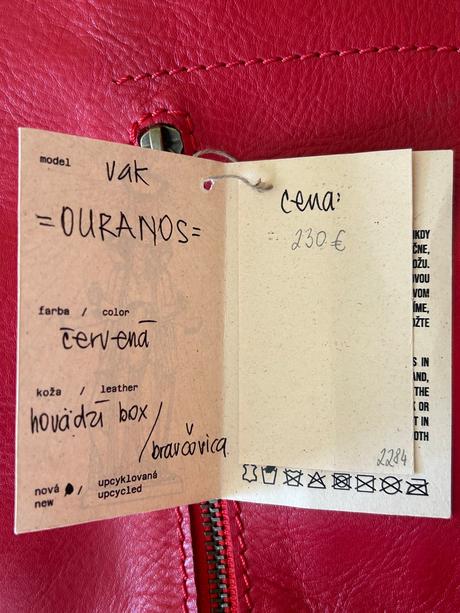 model vak
=OURANOS=
farba / color
červená
koža / leather
hovädzí box / bravčovica
nová / upcyklovaná
new upcycled
cena:
230 €
2284
IKDY
ČNE,
OŽU.
OVOU
VOM
ÍME,
OŽTE
S IN
AND,
THE
K OR
T IN
OTH